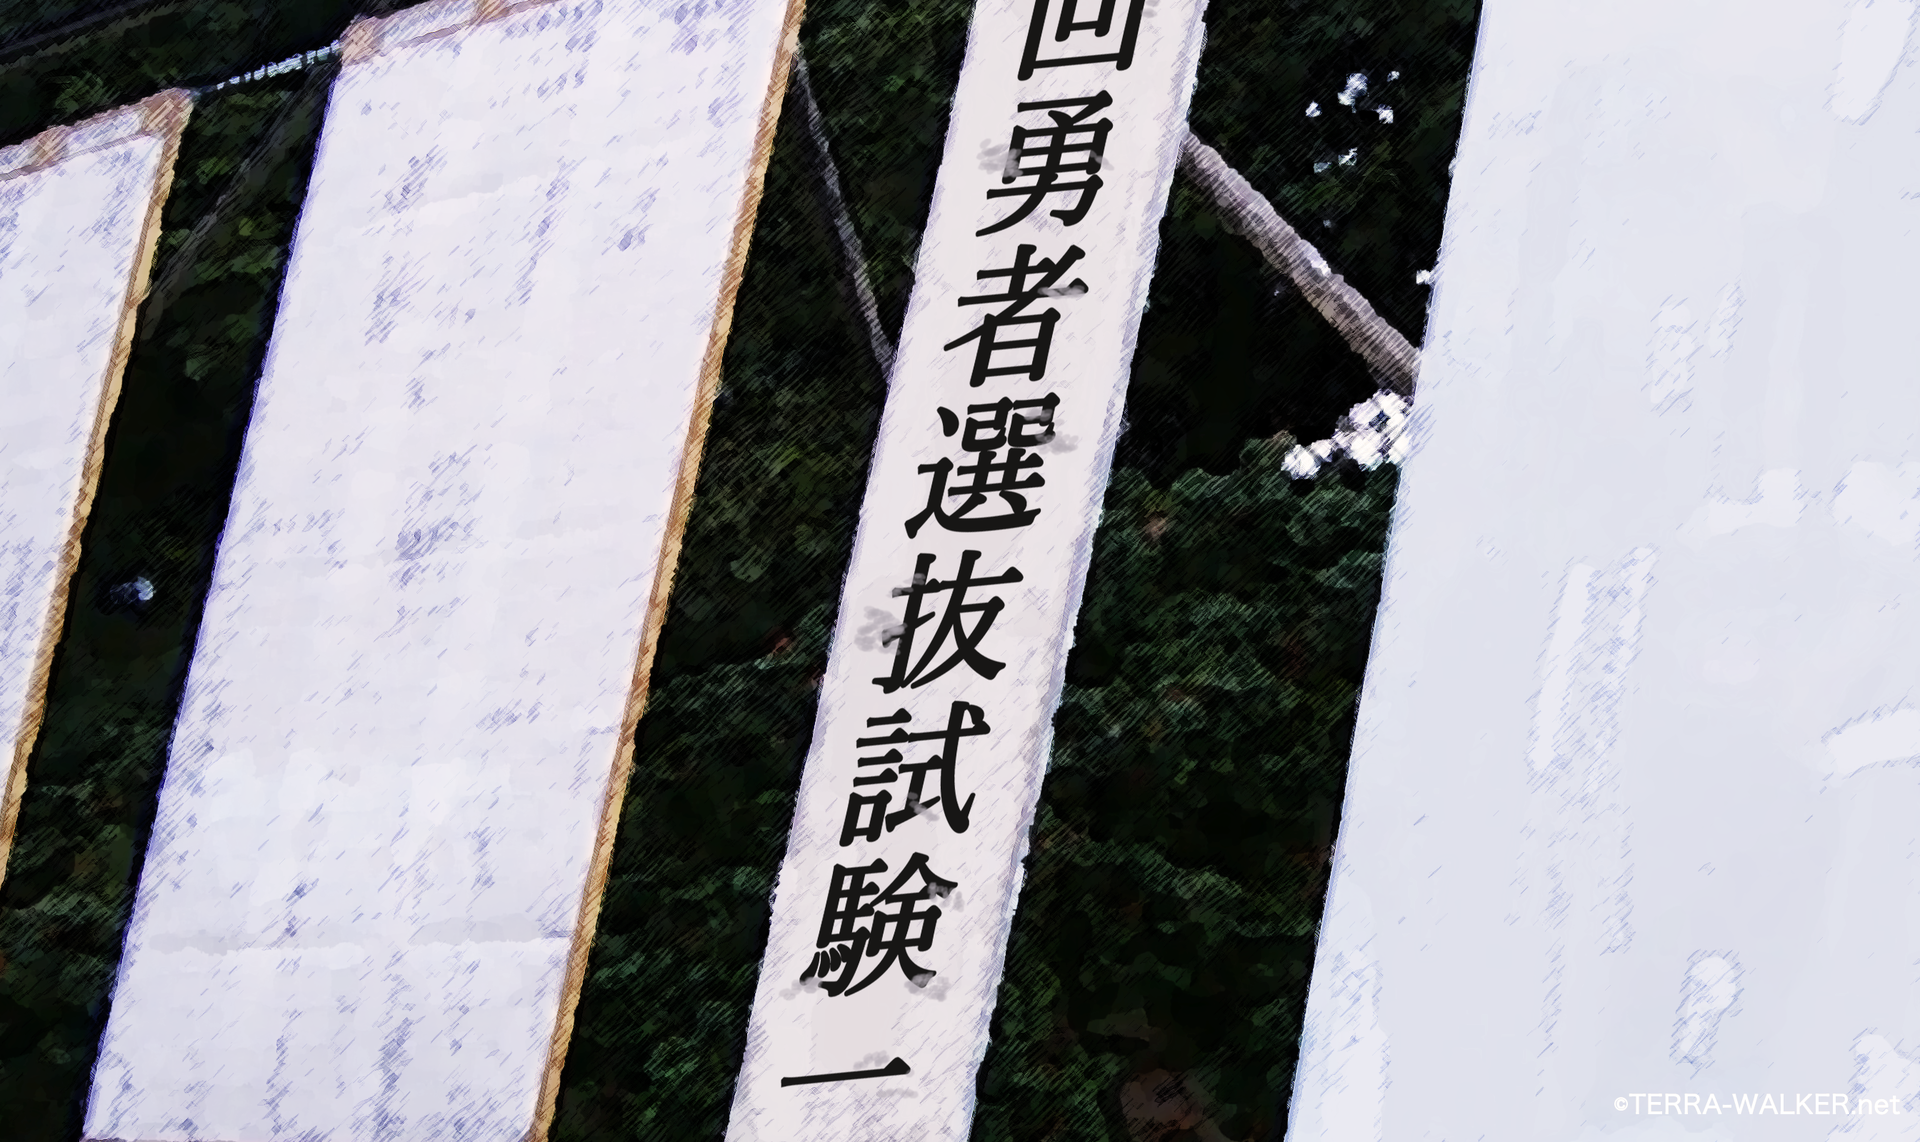 回勇者選抜試験一
©TERRA-WALKER.net